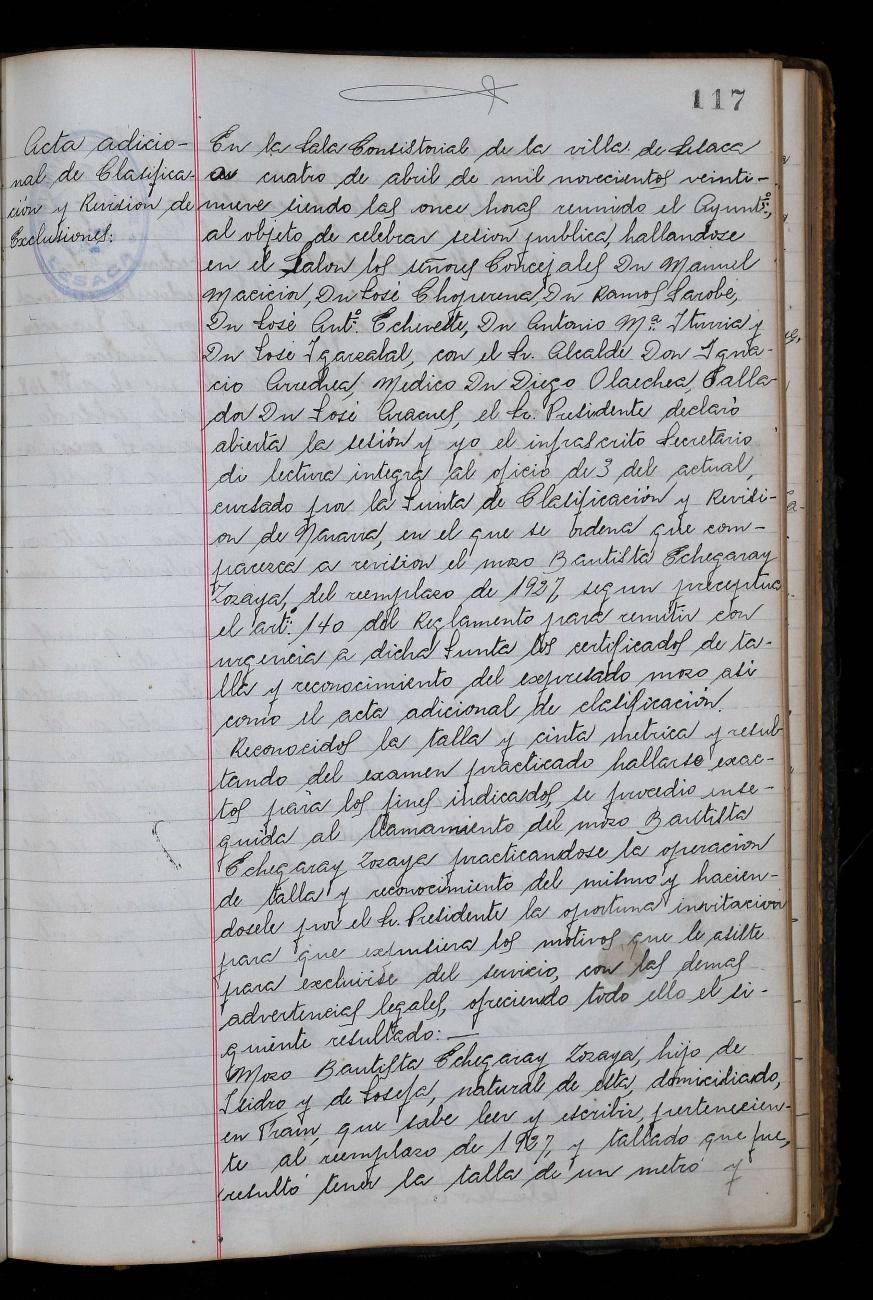 117
Acta adicio-
nal de Clasifica-
ción y Revision de
Exclusiones:
LESACA
En la Sala Consistorial de la villa de Lesaca
a cuatro de abril de mil novecientos veinti-
nueve siendo las once horas reunido el Ayuntº.,
al objeto de celebrar sesion publica, hallandose
en el Salon los señores Concejales Dn Manuel
Macicior, Dn José Choperena, Dn Ramos Sarobe,
Dn José Antº. Echeveste, Dn Antonio Mª. Iturria y
Dn José Igarzabal, con el Sr. Alcalde Don Igna-
cio Arrechea, Medico Dn Diego Olaechea, Talla-
dor Dn José Aracues, el Sr. Presidente declaró
abierta la sesión y yo el infrascrito Secretario
di lectura integra al oficio de 3 del actual,
cursado por la Junta de Clasificación y Revisi-
on de Navarra, en el que se ordena que com-
parezca a revision el mozo Bautista Echegaray
Zozaya, del reemplazo de 1927, segun preceptua
el artº. 140 del Reglamento para remitir con
urgencia a dicha Junta los certificados de ta-
lla y reconocimiento del expresado mozo asi
como el acta adicional de clasificación.
Reconocidos la talla y cinta metrica y resul-
tando del examen practicado hallarse exac-
tos para los fines indicados, se procedio inse-
guida al llamamiento del mozo Bautista
Echegaray Zozaya practicandose la operacion
de talla y reconocimiento del mismo y hacien-
dosele por el Sr. Presidente la oportuna invitacion
para que expusiera los motivos que le asiste
para excluirse del servicio, con las demas
advertencias legales, ofreciendo todo ello el si-
guiente resultado: —
Mozo Bautista Echegaray Zozaya, hijo de
Isidro y de Josefa, natural de esta, domiciliado,
en Irun, que sabe leer y escribir, pertenecien-
te al reemplazo de 1927, y tallado que fue,
resultó tener la talla de un metro y